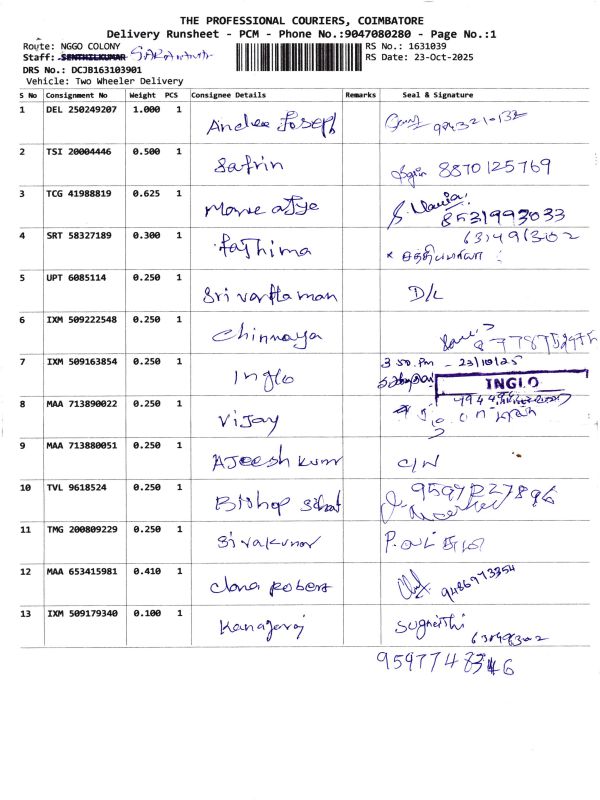 THE PROFESSIONAL COURIERS, COIMBATORE
Delivery Runsheet - PCM - Phone No.:9047080280 - Page No.:1
Route: NGGO COLONY
RS No.: 1631039
Staff: SENTHILKUMAR
RS Date: 23-Oct-2025
DRS No.: DCJB163103901
Vehicle: Two Wheeler Delivery
S No Consignment No Weight PCS Consignee Details Remarks Seal & Signature
1 DEL 250249207 1.000 1 Andrea Joseph
2 TSI 20004446 0.500 1 Safrin 8870125769
3 TCG 41988819 0.625 1 8531993033
4 SRT 58327189 0.300 1 Fathima 631491302
5 UPT 6085114 0.250 1 Srivarthaman D/L
6 IXM 509222548 0.250 1 Chinnaya
7 IXM 509163854 0.250 1 Inglo 3 50. Pm - 23/10/25
INGLO
8 MAA 713890022 0.250 1 Vijay
9 MAA 713880051 0.250 1 Ajeesh kumr C/N
10 TVL 9618524 0.250 1 Bishop 9597227896
11 TMG 200809229 0.250 1 Sivakumar
12 MAA 653415981 0.410 1 Clona Robers 9486973354
13 IXM 509179340 0.100 1 Kanagaraj
9597748346